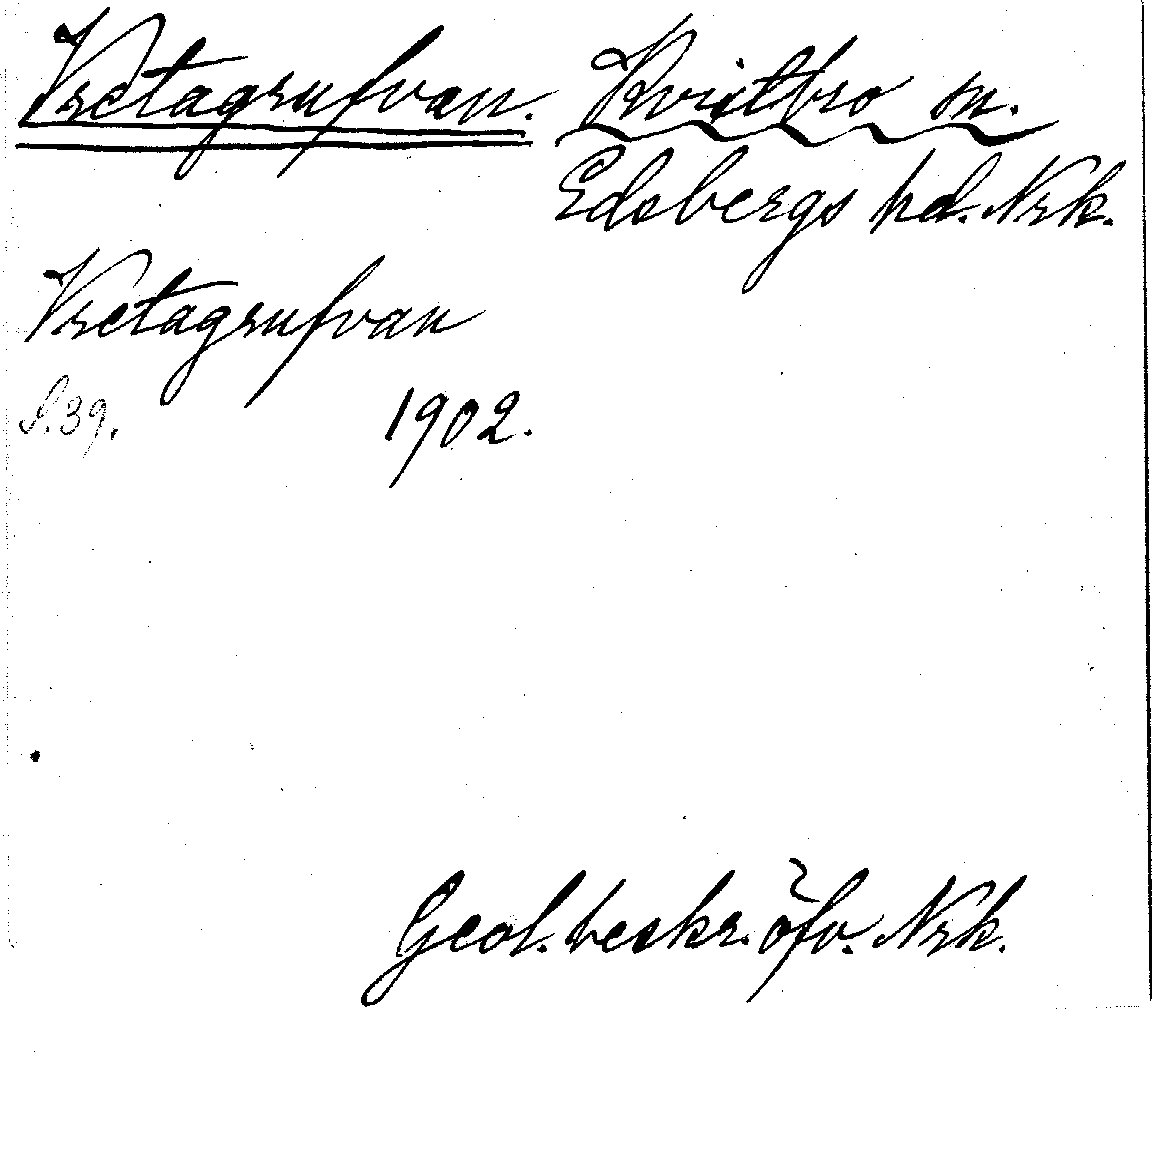 Vretagrufvan. Kvistbro sn.
Edsbergs hd. Nrk.
Vretagrufvan
S. 39. 1902.
Geol. beskr. öfv. Nrk.